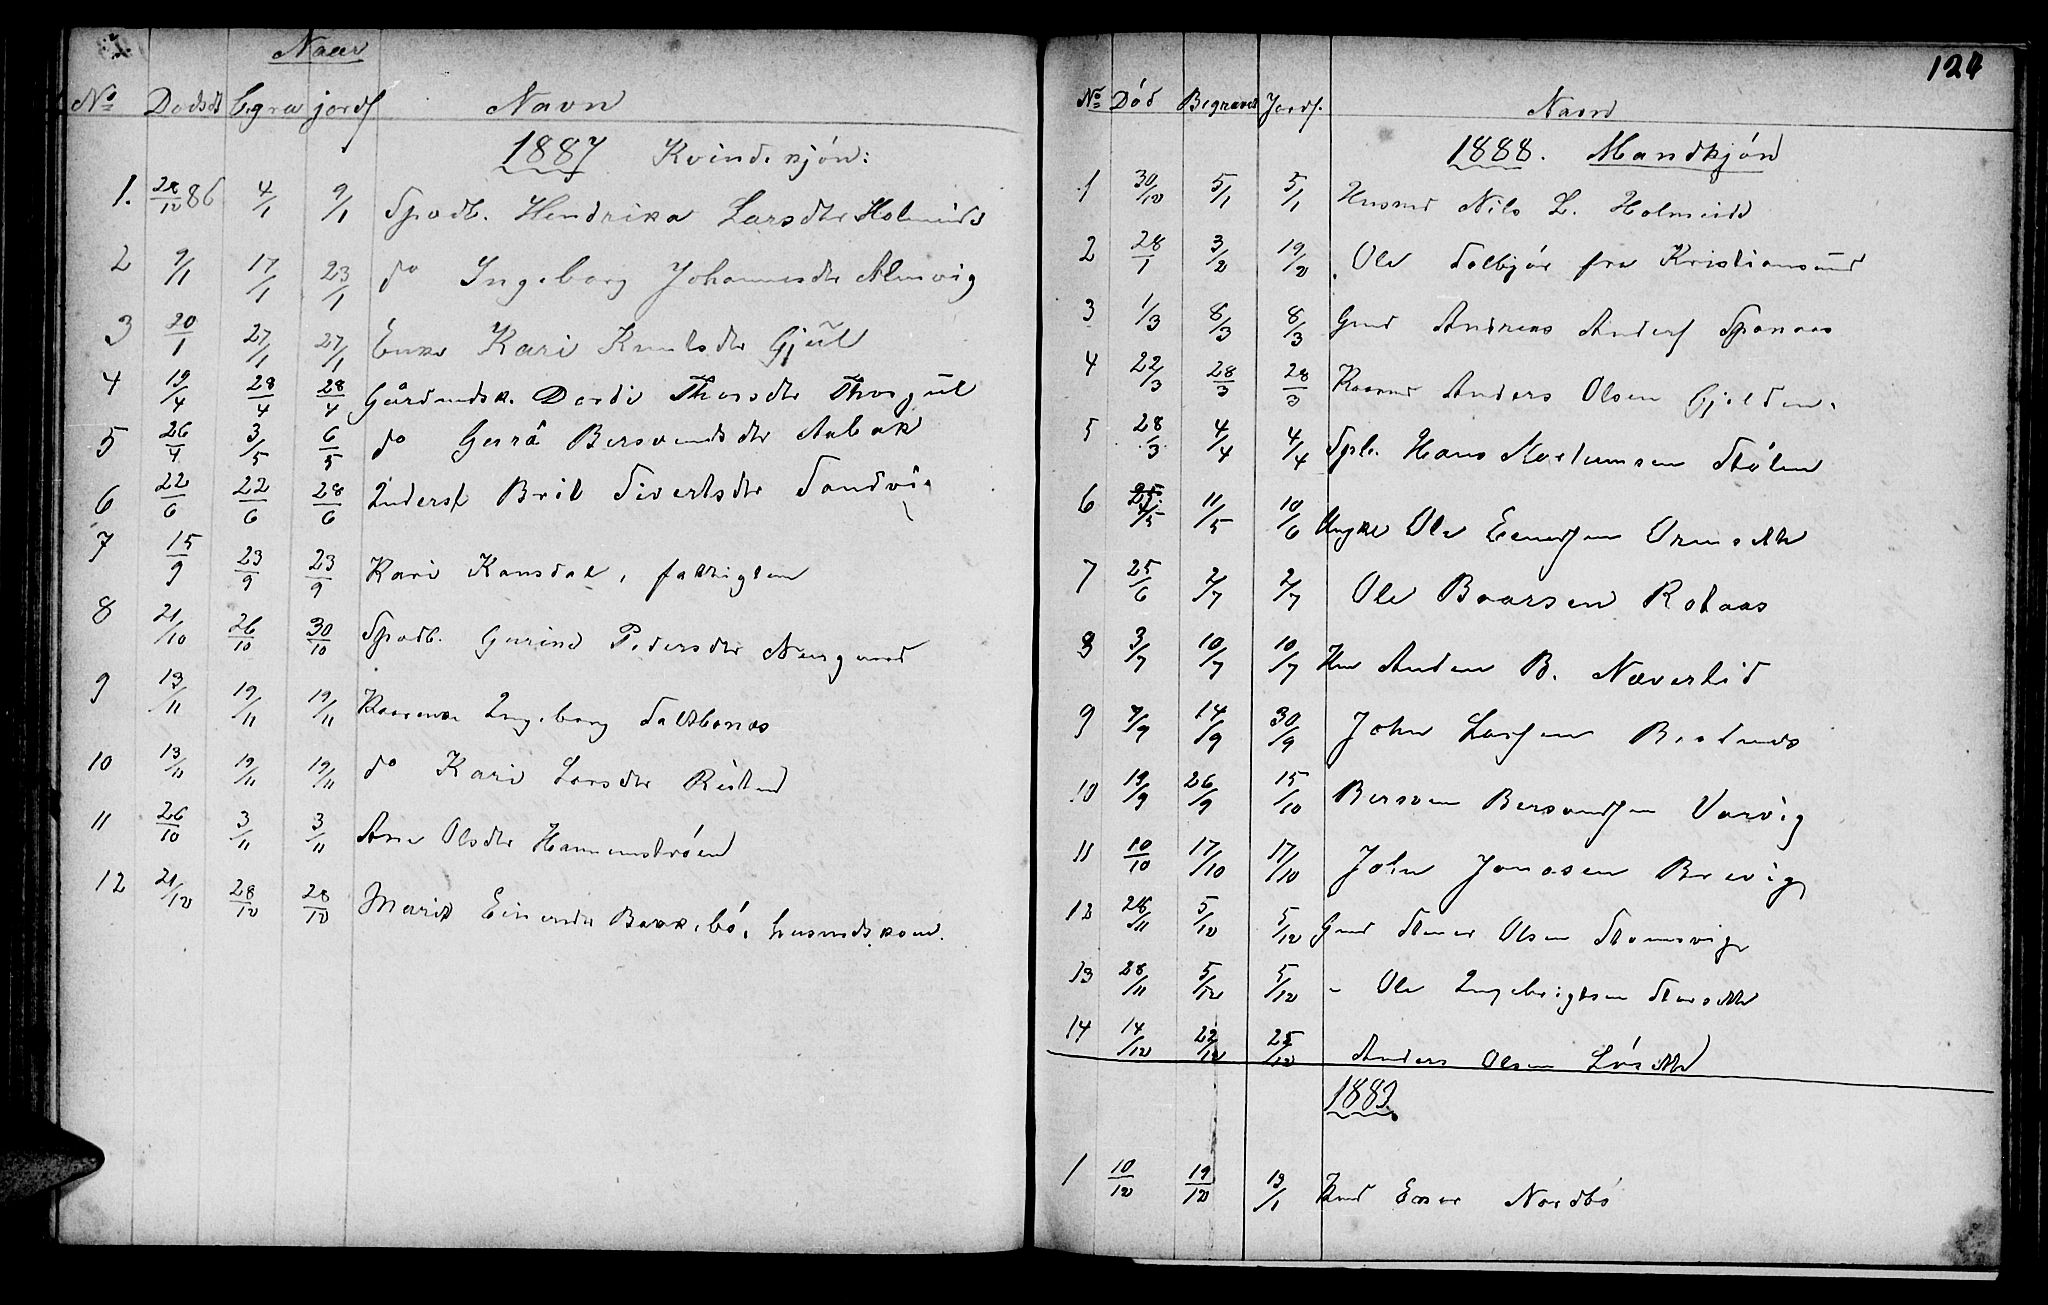 Naar
No Dødsdt begra jordf Navn
1887 Kvindekjøn:
1. 28/12 86 4/1 9/1 Spædb. Hendrika Larsdtr Holmeide
2 9/1 17/1 23/1 do Ingeborg Johannesdtr Almvig
3 20/1 27/1 27/1 Enke Kari Knutsdtr Gjül
4 19/4 28/4 28/4 Gårdmdsk. Dordi Thorsdtr
5 26/4 3/5 6/5 do Gurå Bersvendsdtr Aabak
6 22/6 22/6 28/6 Inderst Brit Sivertsdtr Sandvi
7 15/9 23/9 23/9 Kari Kansdal, fattiglem
8 21/10 26/10 30/10 Spædb. Gurine Pedersdtr
9 13/11 19/11 19/11 Kaarenke Ingeborg
10 13/11 19/11 19/11 do Kari Larsdtr
11 26/10 3/11 3/11 Ane Olsdtr
12 21/12 28/12 28/12 Marit husmdskone.
124
No Død Begravet Jordf. Navn
1888. Mandkjøn
1 30/12 5/1 5/1 Husmd Nils L. Holmeide
2 28/1 3/2 19/2 Ole Solbjør fra Kristiansund
3 1/3 8/3 8/3 Gmd Andreas Anders Sponaas
4 22/3 28/3 28/3 Kaarmd Anders Olsen Gjelden.
5 28/3 4/4 4/4 Spb. Hans Mortensen Stølen
6 4/5 11/5 10/6 Ungkl Ole
7 25/6 2/7 2/7 Ole Baarsen Rotaas
8 3/7 10/7 10/7 Hm Anders B. Næverlid
9 7/9 14/9 30/9 John Larsen
10 19/9 26/9 15/10 Bersven Bersvendsen Vorvig
11 10/10 17/10 17/10 John Jonasen Brevig
12 28/11 5/12 5/12 Gmd Olsen
13 28/11 5/12 5/12 - Ole Ingebrigtsen
14 14/12 22/12 25/12 Anders Olsen
1889.
1 10/12 19/12 13/1 Nordbö